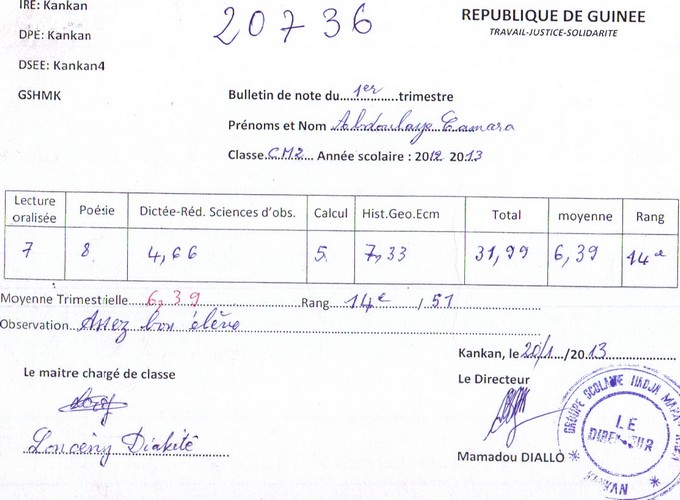 IRE: Kankan
20736
REPUBLIQUE DE GUINEE
DPE: Kankan
TRAVAIL-JUSTICE-SOLIDARITE
DSEE: Kankan4
GSHMK
Bulletin de note du....1er....trimestre
Prénoms et Nom Abdoulaye Camara
Classe.CM2... Année scolaire : 2012 2013
Lecture oralisée Poésie Dictée-Réd. Sciences d'obs. Calcul Hist.Geo.Ecm Total moyenne Rang
7 8. 4,66 5. 7,33 31,99 6,39 14e
Moyenne Trimestrielle....6,39....Rang....14e..../ 51
Observation...Assez bon élève
Kankan, le 20/1.../20.13
Le maitre chargé de classe
Le Directeur
GROUPE SCOLAIRE HADJA
LE
DIRECTEUR
KANKAN
Lonceny Diakité
Mamadou DIALLO